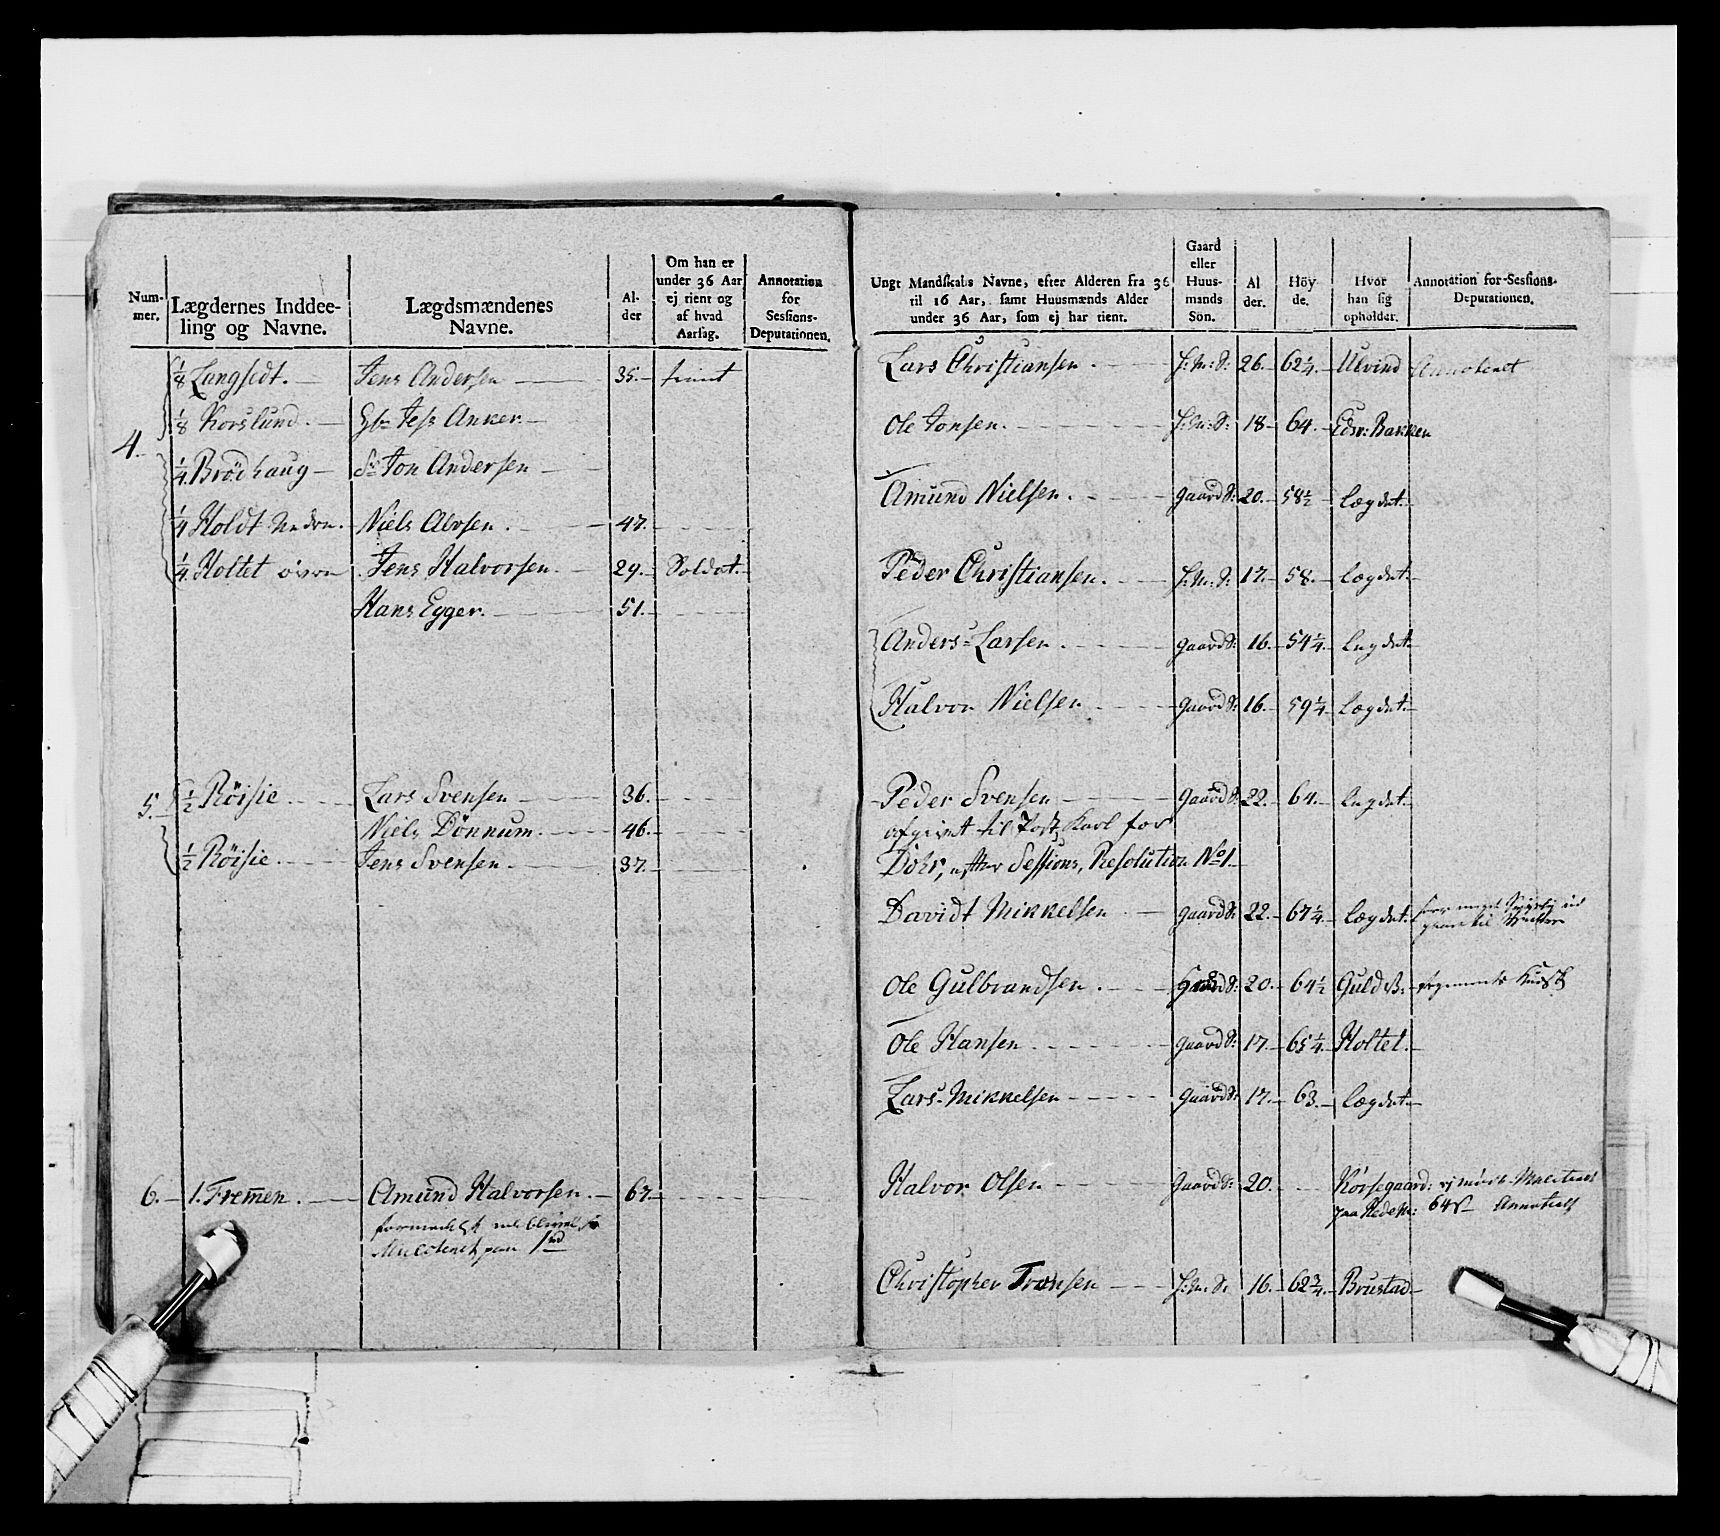 Num-
mer.
Lægdernes Inddee-
ling og Navne.
Lægdsmændenes
Navne.
Al-
der
Om han er
under 36 Aar
ej tient og
af hvad
Aarsag.
Annotation
for
Sessions-
Deputationen.
4. 1/8 Langsedt. Jens Andersen 35. tient
1/8 Korslund. Jess Anker.
1/4 Brödhaug Jon Andersen
1/4 Holdt Nedre. Niels Alvsen. 47.
1/4 Holtet øvre Jens Halvorsen. 29. Soldat.
Hans Egger. 51.
5. 1/2 Röisie. Lars Svensen 36.
Niels Dönnum. 46.
1/2 Röisie. Jens Svensen. 37.
6. 1. Fremen. Amund Halvorsen. 67.
paa 1
Ungt Mandskabs Navne, efter Alderen fra 36
til 16 Aar, samt Huusmænds Alder
under 36 Aar, som ej har tient.
Gaard
eller
Huus-
mands
Sön.
Al
der.
Höy-
de.
Hvor
han sig
opholder.
Annotation for Sessions-
Deputationen.
Lars Christiansen. H:M:S: 26. 62 1/4. Ulvind Annoteret
Ole Jonsen. H:M:S: 18 64. Edsv: Bakken
Amund Nielsen. gaard S: 20. 58 1/2 lægdet.
Peder Christiansen. H:M:S: 17. 58. lægdet.
Anders Larsen. gaard S: 16. 54 1/4. lægdet.
Halvor Nielsen gaard S: 16. 59 1/4 lægdet.
Peder Svensen gaard S: 22. 64. lægdet.
afgivet til Post Karl for
Dohr, efter Sessions, Resolution No 1.
Davidt Mikkelsen gaard S: 22. 67 1/4. lægdet.
Ole Gulbrandsen. Gaard S: 20. 64 1/2 Guld B:
Ole Hansen. gaard S: 17. 65 1/4. Holtet.
Lars Mikkelsen gaard S: 17. 63. lægdet.
Halvor Olsen gaard S: 20. Korsegaard: ej mödt
64 Annoteret
Christopher Fransen H.M.S. 16. 62 3/4. Brustad